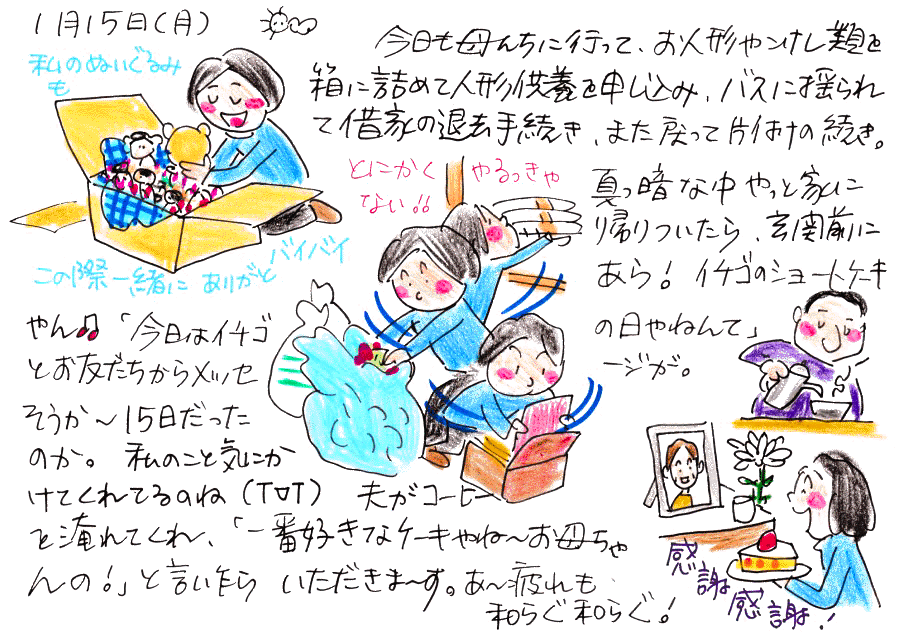 1月15日(月)
今日も母んちに行って、お人形やこけし類を
箱に詰めて人形供養を申し込み、バスに揺られ
て借家の退去手続き、また戻って片付けの続き。
真っ暗な中やっと家に
帰りついたら、玄関前に
あら！イチゴのショートケーキ
やん♫「今日はイチゴ
の日やねんて」
とお友だちからメッセ
ージが。
そうか〜15日だった
のか。私のこと気にか
けてくれてるのね(T▽T) 夫がコーヒー
を淹れてくれ、「一番好きなケーキやね〜お母ちゃ
んの！」と言いながら いただきま〜す。あ〜疲れも
和らぐ和らぐ！
私のぬいぐるみ
も
この際一緒に ありがと
バイバイ
とにかく やるっきゃ
ない!!
感謝
感謝！